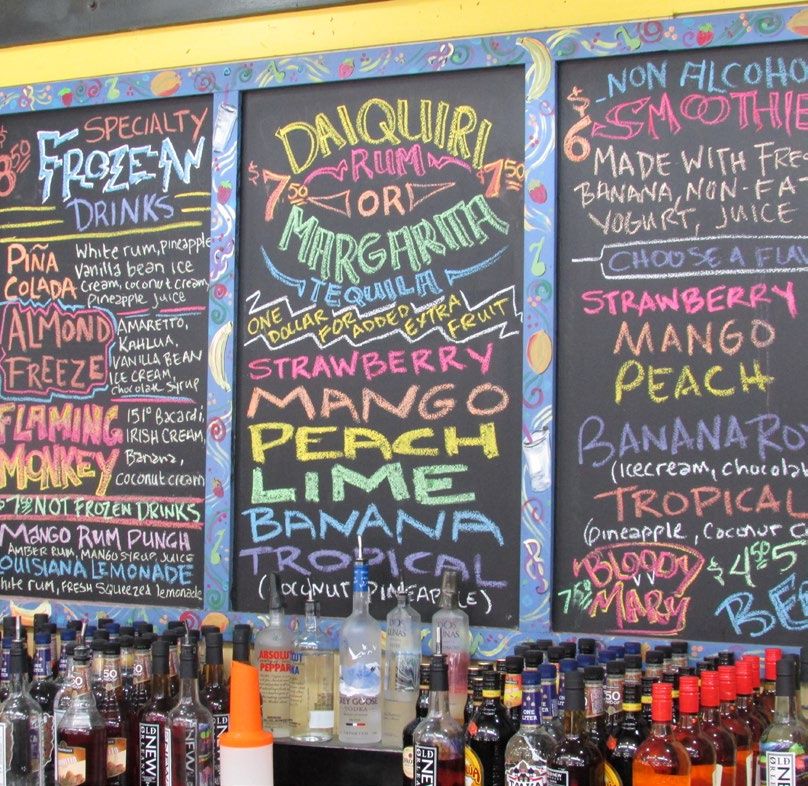 $8.50 SPECIALTY
FROZEN
DRINKS
PIÑA
COLADA
White rum, pineapple
Vanilla bean ice
cream, coconut cream
pineapple juice
ALMOND
FREEZE
AMARETTO,
KAHLUA,
VANILLA BEAN
ICE CREAM,
chocolate syrup
FLAMING
MONKEY
151° Bacardi,
IRISH CREAM,
Banana,
coconut cream
$7.50 NOT FROZEN DRINKS
MANGO RUM PUNCH
AMBER RUM, MANGO SYRUP, JUICE
OUISIANA LEMONADE
hite rum, FRESH Squeezed lemonade
DAIQUIRI
RUM
$7.50 OR 7.50
MARGARITA
TEQUILA
ONE DOLLAR FOR ADDED EXTRA FRUIT
STRAWBERRY
MANGO
PEACH
LIME
BANANA
TROPICAL
(COCONUT PINEAPPLE)
NON ALCOHO
$6 SMOOTHIE
MADE WITH FRE
BANANA, NON-FA
YOGURT, JUICE
CHOOSE A FLAV
STRAWBERRY
MANGO
PEACH
BANANA RO
(icecream, chocolat
TROPICAL
(pineapple, coconut c
BLOODY
MARY
$4.50 5
BE
ABSOLUT
PEPPAR
GREY GOOSE
VODKA
OLD NEW ORLEANS